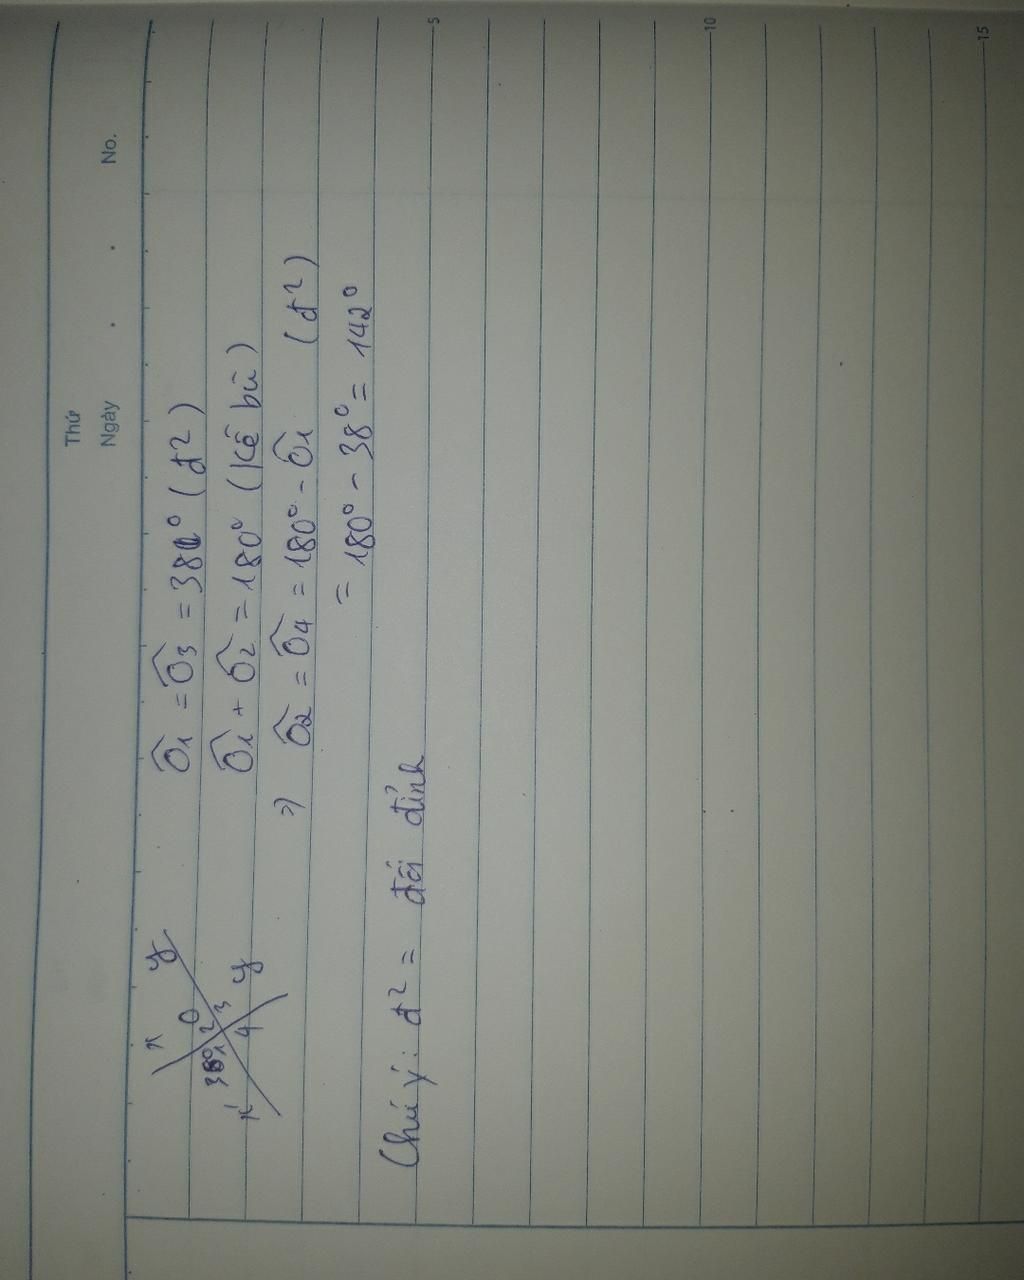 Thứ
Ngày . . No.
x y
O
38° 1 2 3
x' 4 y
Ô1 = Ô3 = 38° (đ²)
Ô1 + Ô2 = 180° (Kề bù)
=> Ô2 = Ô4 = 180° - Ô1 (đ²)
= 180° - 38° = 142°
Chú ý: đ² = đối đỉnh
5
10
15